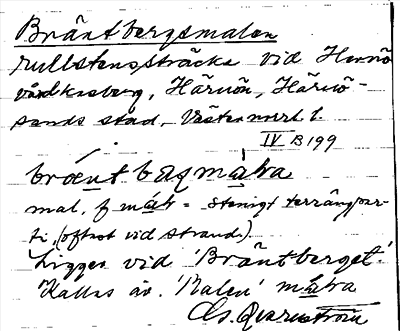 Bräntbergsmalen
rullstenssträcka vid Hernö
vårdkasberg, Härnön, Härnö-
sands stad, Västernorrl. l.
IV B 199
mal, f = stenigt terrängpar-
ti, (oftast vid strand).
Ligger vid 'Bräntberget'.
Kallas äv. 'Malen'